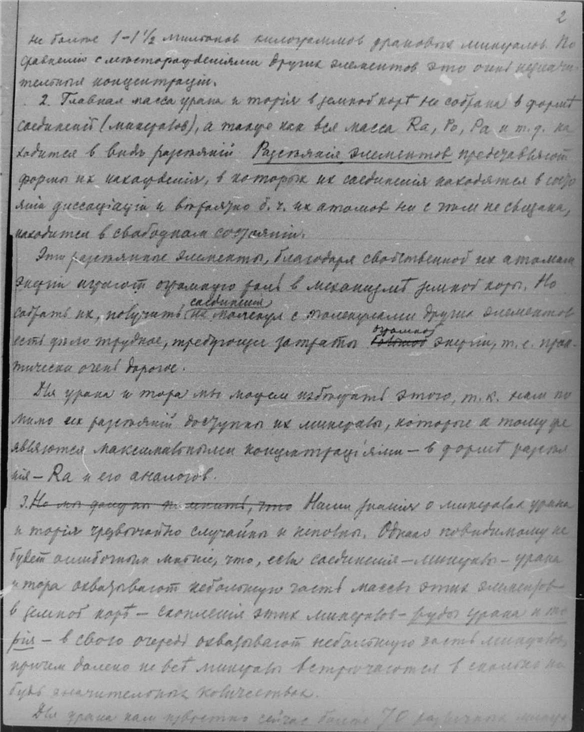 2
не более 1–1½ милионов килограммов урановых минералов. По
сравнению с месторождениями других элементов это очень незначи-
тельныя концентраціи.
2. Главная масса урана и торія в земной коре не собрана в форме
соединений (минералов), а также как вся масса Ra, Po, Pa и т.д. на
ходится в виде разсеяній. Разсеянія элементов представляют
формы их нахожденія, в которых их соединения находятся в состо
яніи диссоціаціи и вероятно б.ч. их атомов ни с чем не связана,
находится в свободном состояніи.
Эти разсеянные элементы, благодаря свойственной их атомам
энергии играют огромную роль в механизме земной коры. Но
собрать их, получить соединения молекул с молекулами других элементов
есть дело трудное, требующее затраты огромной энергии, т.е. прак-
тически очень дорогое.
Для урана и тора мы можем избежать этого, т.к. нам по
мимо их разсеяній доступны их минералы, которые к тому же
являются максимальными концентраціями – в форме разсея
нія – Ra и его аналогов.
3. Но мы должны помнить, что Наши знания о минералах урана
и торія чрезвычайно случайны и неполны. Однако повидимому не
будет ошибочным мненіе, что, если соединенія – минералы – урана
и тора охватывают небольшую часть массы этих элементов
в земной коре – скопленія этих минералов – руды урана и то
рія – в свою очередь охватывают небольшую часть минералов,
причем далеко не все минералы встречаются в сколько ни
будь значительных количествах.
Для урана нам известно сейчас более 70 различных минера